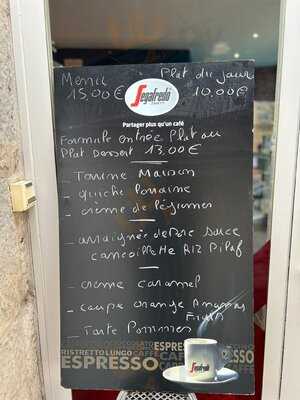 Menu Plat du jour
15,00€ 10,00€
Segafredo
ZANETTI
Partager plus qu'un café
Formule entrée Plat ou
Plat Dessert 13,00€
Terrine Maison
- quiche lorraine
- crème de légumes
- araignée de Porc sauce
cancoillotte Riz Pilaf
- creme caramel
- coupe orange Ananas
Fruits
- Tarte Pommes
ESPRESSO
RISTRETTO LUNGO CAFFÈ
ESPRESSO